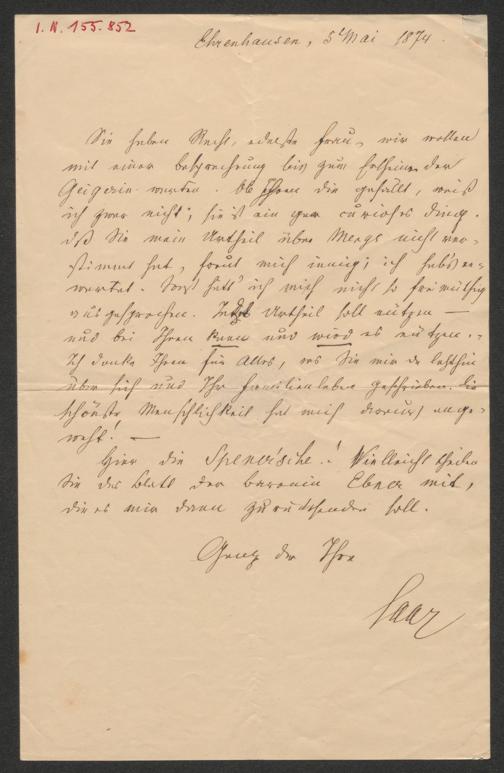 I. N. 155.852
Ehrenhausen, 5t Mai 1874.
Sie haben Recht, edelste Frau, wir wollen
mit einer Besprechung bis zum Erscheinen der
Geigerin warten. Ob Ihnen die gefällt, weiß
ich zwar nicht; sie ist ein gar curioses Ding.
Daß Sie mein Urtheil über Merys nicht ver-
stimmt hat, freut mich innig; ich hab's er-
wartet. Sonst hätt' ich mich nicht so freimüthig
ausgesprochen. Jedes Urtheil soll nützen —
und bei Ihnen kann und wird es nützen. –
Ich danke Ihnen für Alles, was Sie mir da letzthin
über sich und Ihr Familienleben geschrieben. Die
schönste Menschlichkeit hat mich daraus ange-
weht! —
Hier die Spener'sche! Vielleicht theilen
Sie das Blatt der Baronin Ebner mit,
die es mir dann zurücksenden soll.
Ganz der Ihre
Saar